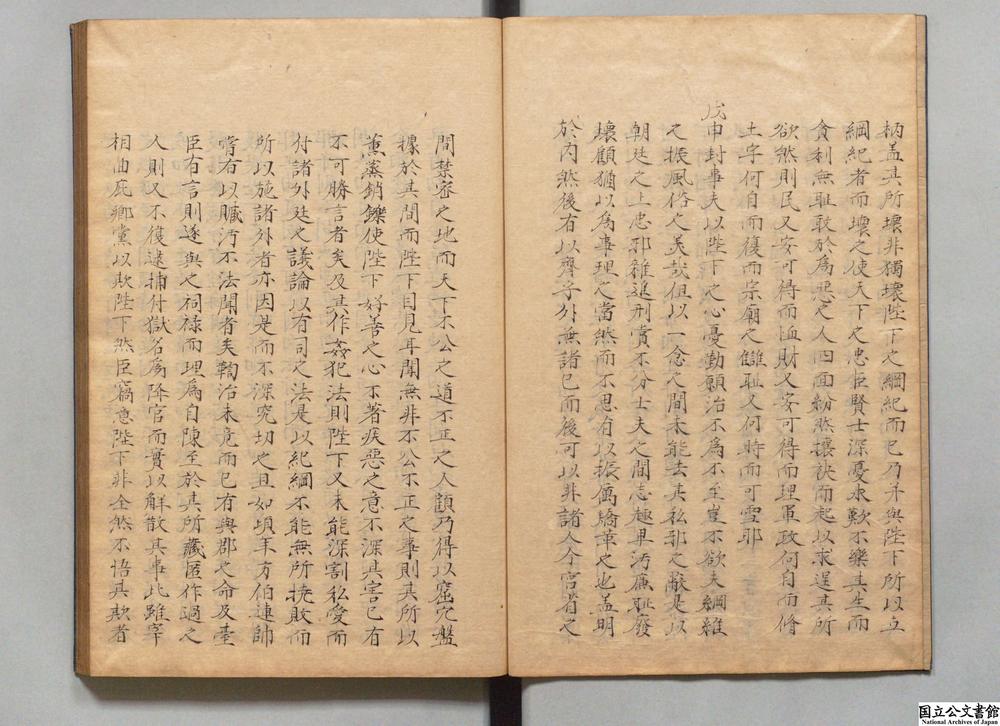 柄盖其所壞非獨壞陛下之綱紀而已乃并與陛下所以立
綱紀者而壞之使天下之忠臣賢士深憂永歎不樂其生而
貪利無耻敢於為惡之人四面紛然攘袂而起以求逞其所
欲然則民又安可得而恤財又安可得而理軍政何自而脩
土宇何自而復而宗廟之讎耻又何時而可雪耶
戊申封事夫以陛下之心憂勤願治不為不至豈不欲夫綱維
之振風俗之美哉但以一念之間未能去其私邪之蔽是以
朝廷之上忠邪雜進刑賞不分士夫之間志趣卑汚廉耻廢
壞顧猶以為事理之當然而不思有以振厲矯革之也盖明
於內然後有以齊乎外無諸己而後可以非諸人今宮省之
間禁密之地而天下不公之道不正之人顧乃得以窟穴盤
據於其間而陛下目見耳聞無非不公不正之事則其所以
薰蒸銷鑠使陛下好善之心不著疾惡之意不深其害已有
不可勝言者矣及其作姦犯法則陛下又未能深割私愛而
付諸外廷之議論以有司之法是以紀綱不能無所撓敗而
所以施諸外者亦因是而不深究切之且如頃年方伯連帥
嘗有以贓汚不法聞者矣鞫治未竟而已有與郡之命及臺
臣有言則遂與之祠祿而理為自陳至於其所藏匿作過之
人則又不復逮捕付獄名為降官而實以解散其事此雖宰
相曲庇鄉黨以欺陛下然臣竊意陛下非全然不悟其欺者
国立公文書館
National Archives of Japan